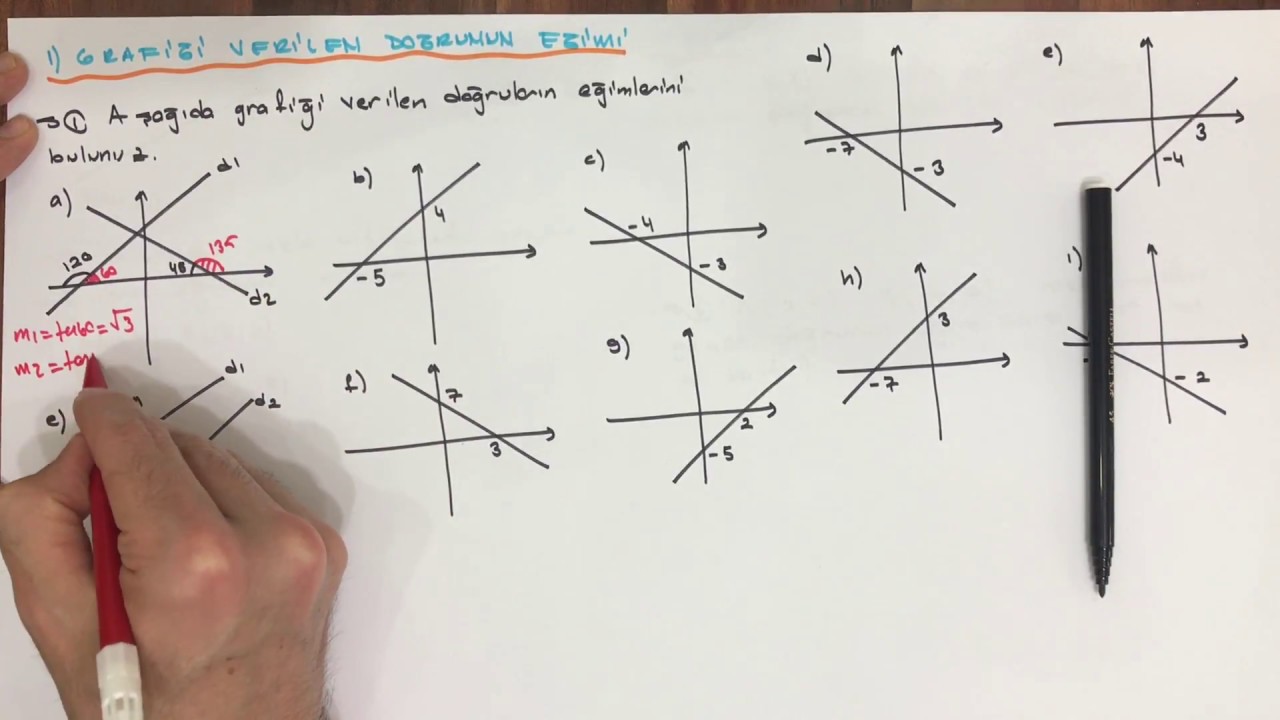 1) GRAFİĞİ VERİLEN DOĞRUNUN EĞİMİ
→① Aşağıda grafiği verilen doğruların eğimlerini
bulunuz.
a)
d1
120
60
45
135
d2
m1=tan60=√3
m2=tan
b)
4
-5
c)
-4
-3
d)
-7
-3
e)
3
-4
e)
d1
d2
f)
7
3
g)
2
-5
h)
3
-7
i)
-2